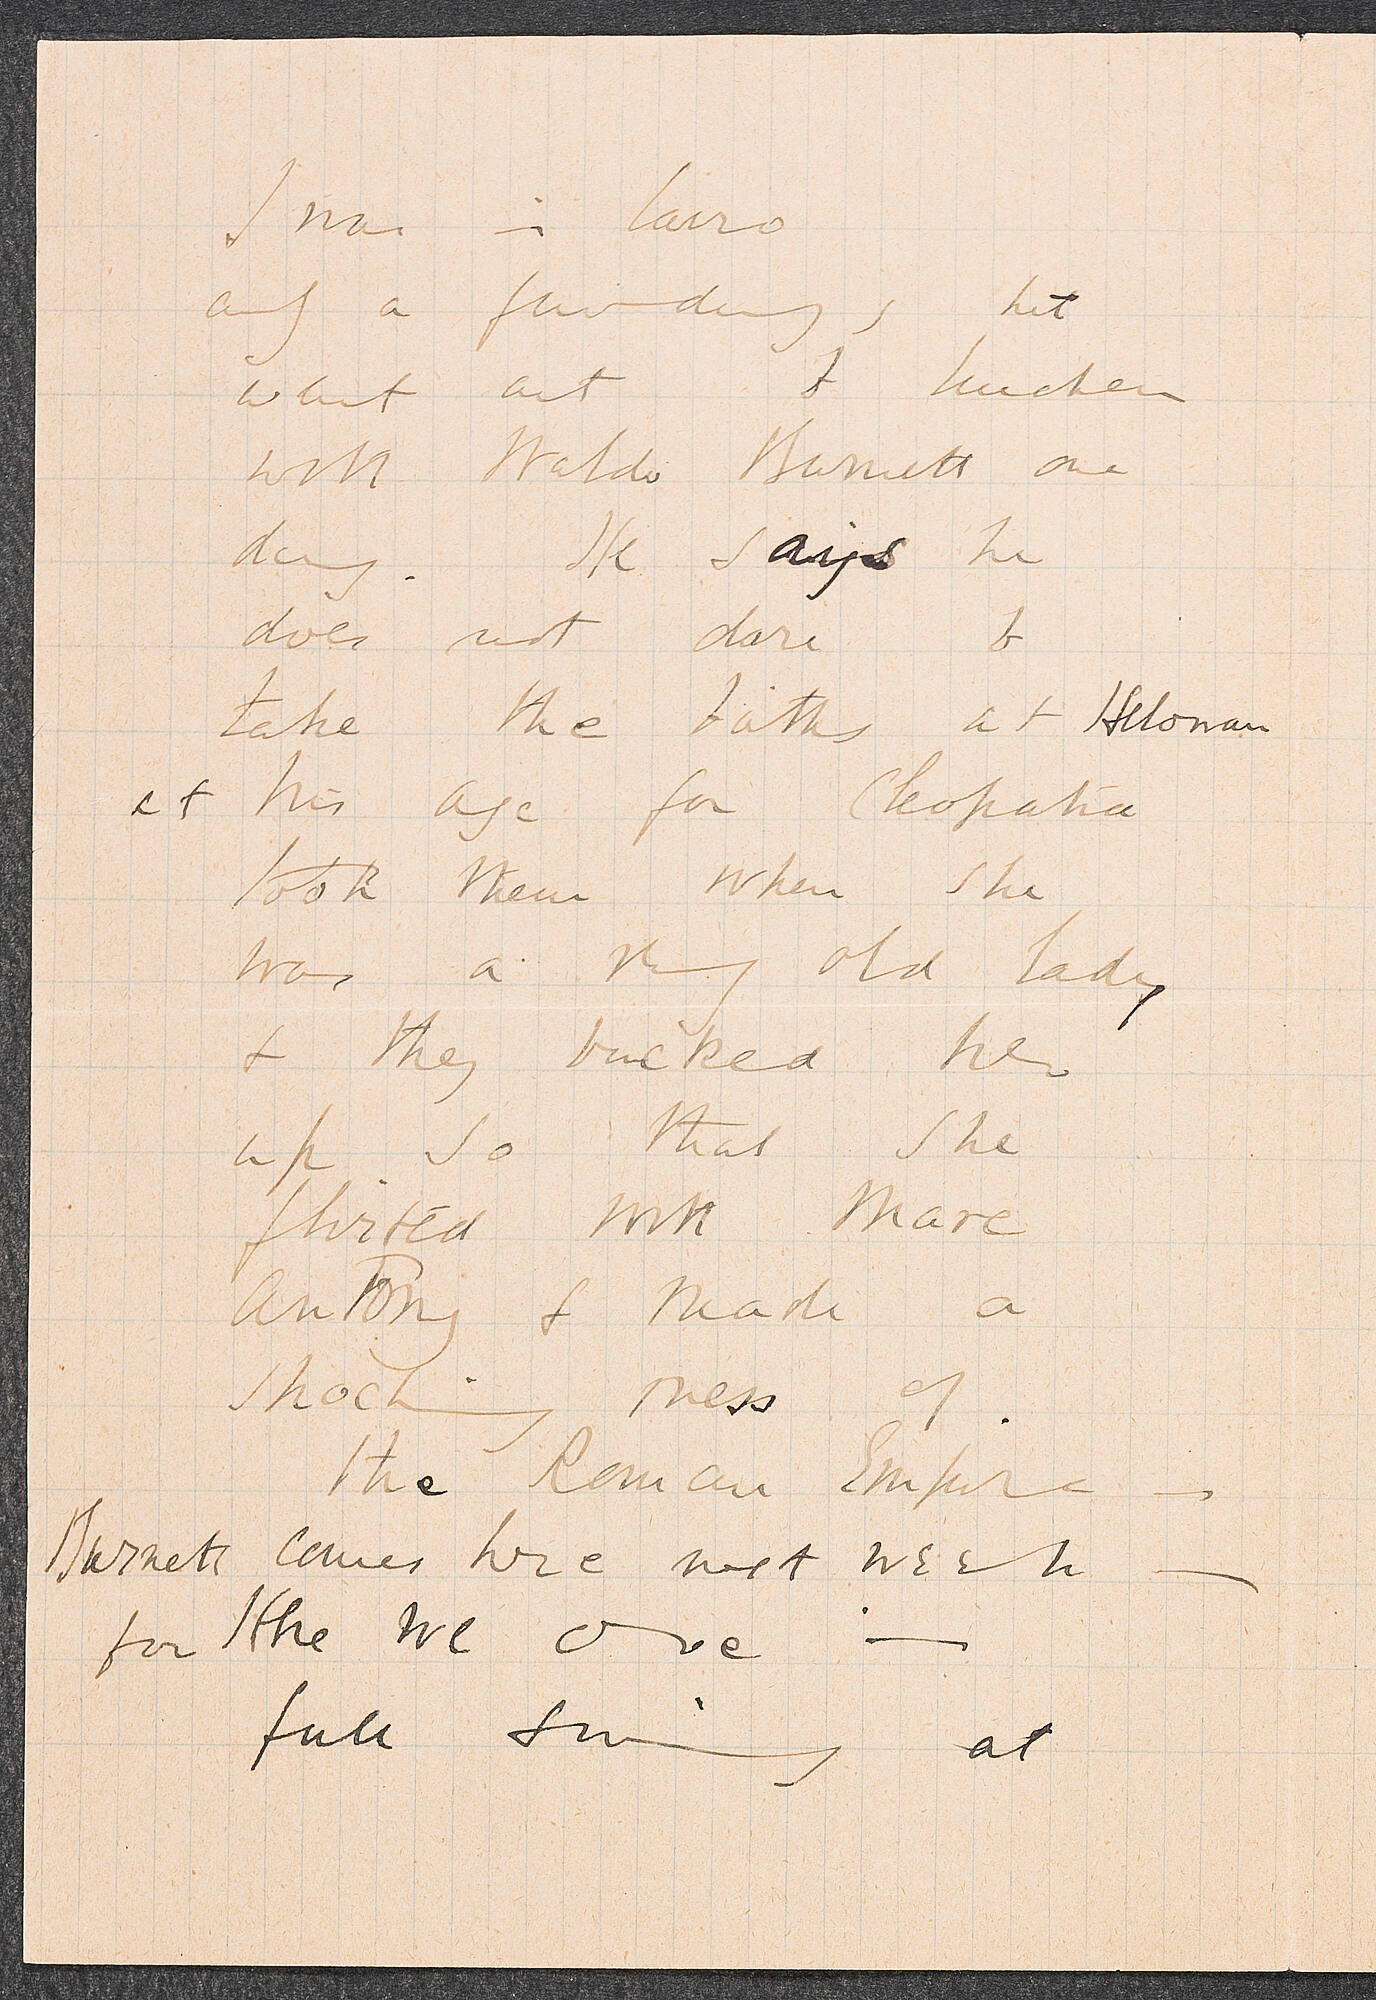 I was in Cairo
only a few days, but
went out to luncheon
with Waldo Burnett one
day. He says he
does not dare to
take the baths at Helowan
at his age for Cleopatra
took them when she
was a very old lady
& they bucked her
up so that she
flirted with Marc
Antony & made a
shocking mess of
the Roman Empire -
Burnett comes here next week —
for the we are in
full swing at